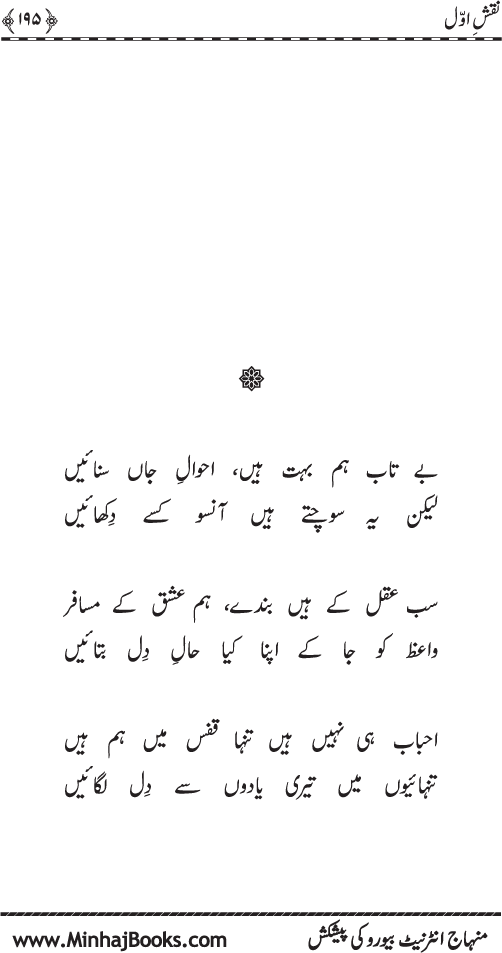 نقشِ اوّل
﴿۱۹۵﴾
بے تاب ہم بہت ہیں، احوالِ جاں سنائیں
لیکن یہ سوچتے ہیں آنسو کسے دِکھائیں
سب عقل کے ہیں بندے، ہم عشق کے مسافر
واعظ کو جا کے اپنا کیا حالِ دِل بتائیں
احباب ہی نہیں ہیں تنہا قفس میں ہم ہیں
تنہائیوں میں تیری یادوں سے دِل لگائیں
منہاج انٹرنیٹ بیورو کی پیشکش
www.MinhajBooks.com